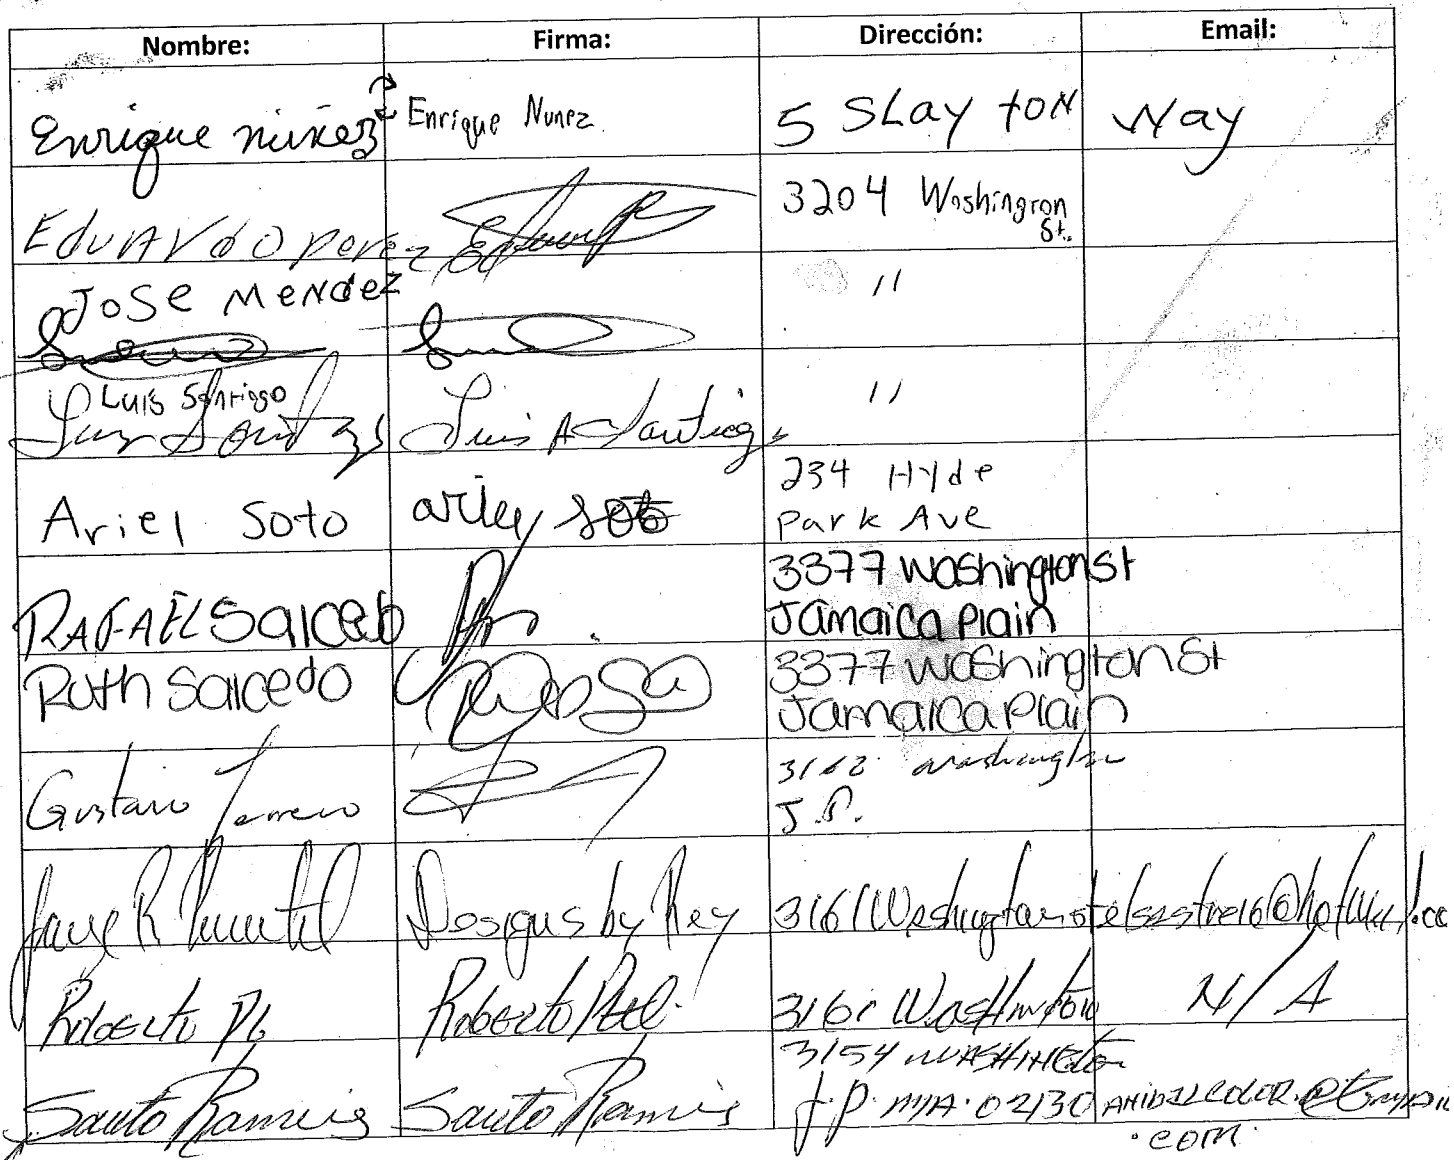 Nombre: Firma: Dirección: Email:
Enrique nuñez Enrique Nunez 5 SLayton Way
Eduardo perez 3204 Washington
St.
Jose Mendez "
Luis Santiago Luis A Santiago "
Ariel Soto ariel soto 234 Hyde
Park Ave
RAFAEL Salcedo 3377 Washington St
Jamaica Plain
Ruth Salcedo 3377 Washington St
Jamaica Plain
Gustavo 3162 washington
J.P.
R Pimentel Designs by Rey 3161 Washington st elsastre16@hotmail.co
Roberto Roberto 3161 Washington N/A
3154 WASHINGTON
Santo Ramirez Santo Ramirez J.P. MA. 02130
.com.